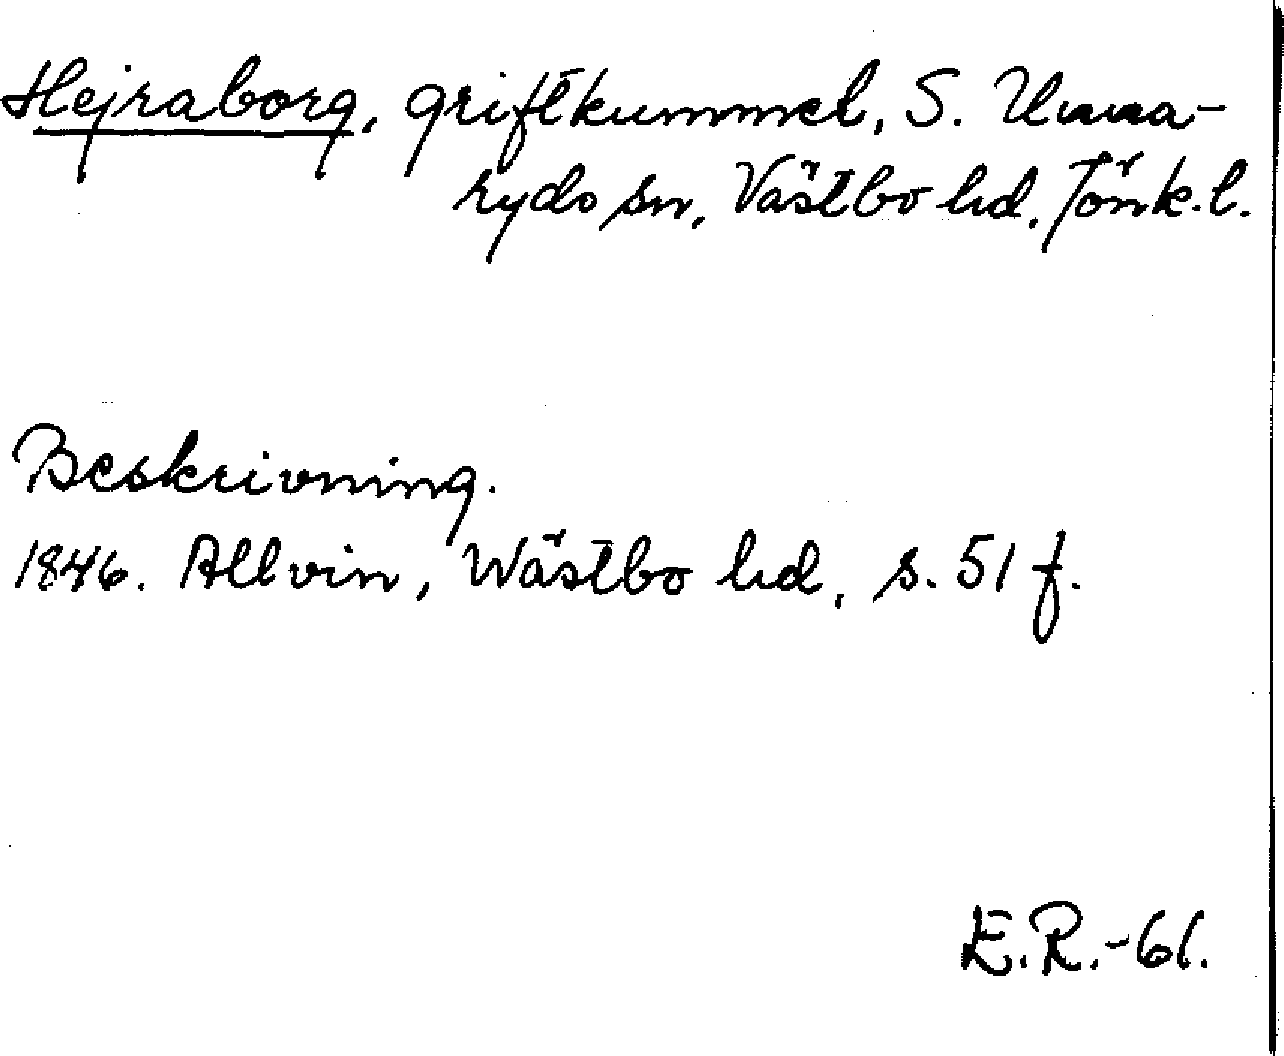 Hejraborg, griftkummel, S. Unna-
ryds sn, Västbo hd, Jönk. l.
Beskrivning.
1846. Allvin, Wästbo hd, s. 51 f.
E.R.-61.